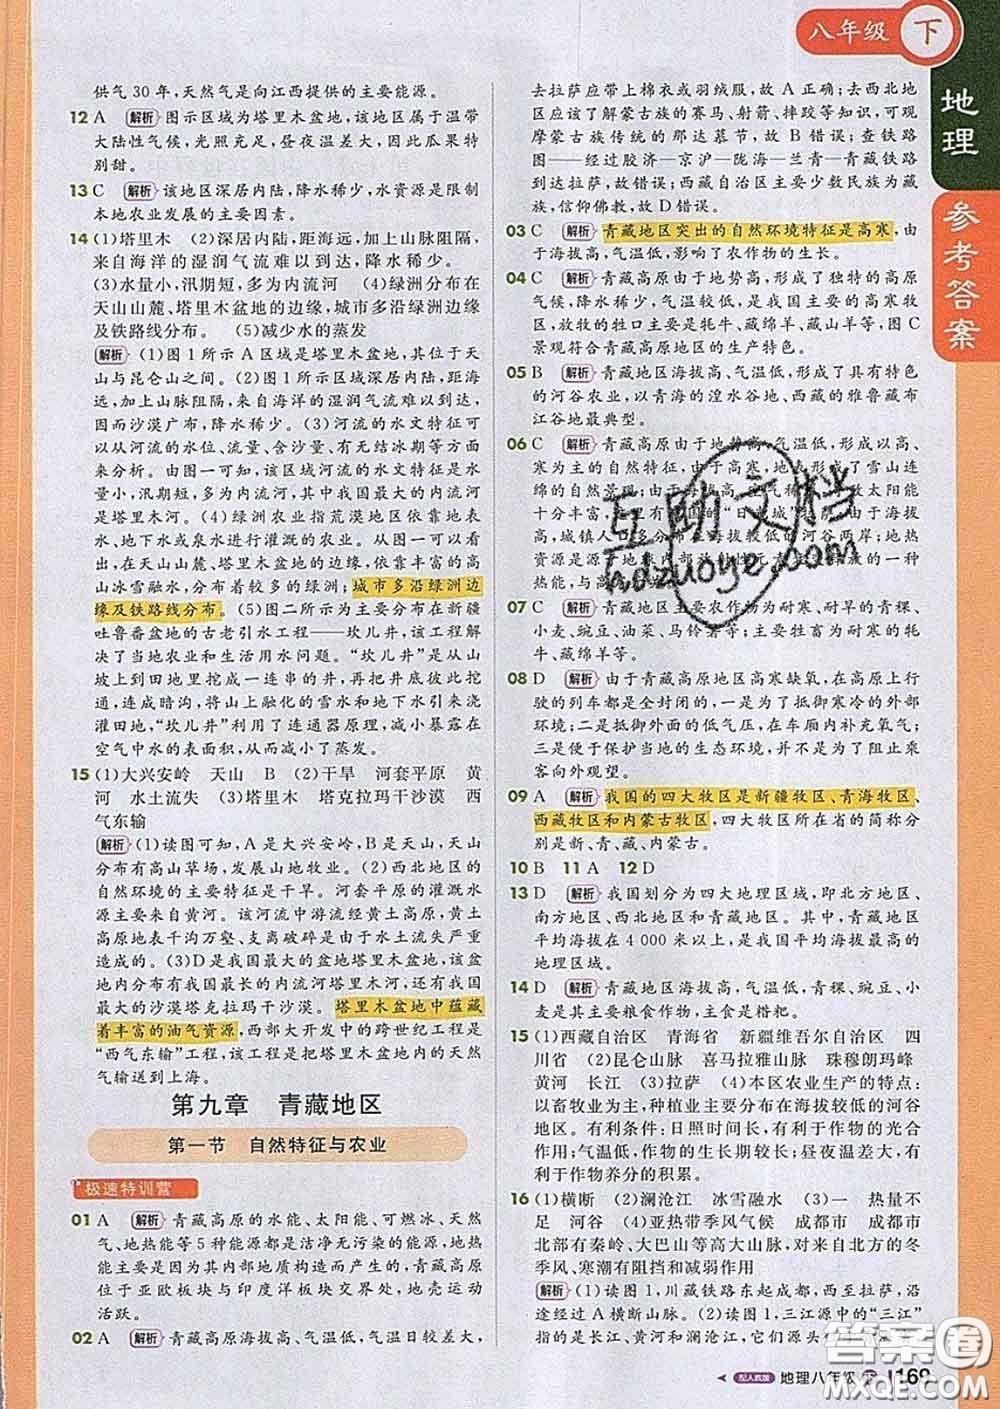 八年级 下
地理
参考答案
供气 30 年,天然气是向江西提供的主要能源。
12 A 解析 图示区域为塔里木盆地,该地区属于温带
大陆性气候,光照充足,昼夜温差大,因此瓜果特
别甜。
13 C 解析 该地区深居内陆,降水稀少,水资源是限制
本地农业发展的主要因素。
14 (1)塔里木 (2)深居内陆,距海远,加上山脉阻隔,
来自海洋的湿润气流难以到达,降水稀少。
(3)水量小,汛期短,多为内流河 (4)绿洲分布在
天山山麓、塔里木盆地的边缘,城市多沿绿洲边缘
及铁路线分布。 (5)减少水的蒸发
解析 (1)图 1 所示 A 区域是塔里木盆地,其位于天
山与昆仑山之间。(2)图 1 所示区域深居内陆,距海
远,加上山脉阻隔,来自海洋的湿润气流难以到达,
因而沙漠广布,降水稀少。(3)河流的水文特征可
以从河流的水位、流量、含沙量、有无结冰期等方面
来分析。由图一可知,该区域河流的水文特征是水
量小,汛期短,多为内流河,其中我国最大的内流河
是塔里木河。(4)绿洲农业指荒漠地区依靠地表
水、地下水或泉水进行灌溉的农业。从图一可以看
出,在天山山麓、塔里木盆地的边缘,依靠丰富的高
山冰雪融水,分布着较多的绿洲;城市多沿绿洲边
缘及铁路线分布。(5)图二所示为主要分布在新疆
吐鲁番盆地的古老引水工程——坎儿井,该工程解决
了当地农业和生活用水问题。“坎儿井”是从山
坡上到田地里挖成一连串的井,再把井底彼此挖
通,连成暗沟,将山上融化的雪水和地下水引来浇
灌田地,“坎儿井”利用了连通器原理,减小暴露在
空气中水的表面积,从而减小了蒸发。
15 (1)大兴安岭 天山 B (2)干旱 河套平原 黄
河 水土流失 (3)塔里木 塔克拉玛干沙漠 西
气东输
解析 (1)读图可知,A 是大兴安岭,B 是天山,天山
分布有高山草场,发展山地牧业。(2)西北地区的
自然环境的主要特征是干旱。河套平原的灌溉水
源主要来自黄河。该河流中游流经黄土高原,黄土
高原地表千沟万壑、支离破碎是由于水土流失严重
造成的。(3)D 是我国最大的盆地塔里木盆地,该盆
地内分布有我国最长的内流河塔里木河,还有我国
最大的沙漠塔克拉玛干沙漠。塔里木盆地中蕴藏
着丰富的油气资源,西部大开发中的跨世纪工程是
“西气东输”工程,该工程是把塔里木盆地内的天然
气输送到上海。
第九章 青藏地区
第一节 自然特征与农业
极速特训营
01 A 解析 青藏高原的水能、太阳能、可燃冰、天然
气、地热能等 5 种能源都是洁净无污染的能源,地
热能也是因为其内部地质构造而产生的,青藏高原
位于亚欧板块与印度洋板块交界处,地壳运动
活跃。
02 A 解析 青藏高原海拔高、气温低,气温日较差大,
去拉萨应带上棉衣或羽绒服,故 A 正确;去西北地
区可以了解蒙古族的赛马、射箭、摔跤等习俗,可观
摩蒙古族传统的那达慕节,故 B 错误;查铁路
图——经过胶济—京沪—陇海—兰青—青藏铁路
到达拉萨,故 C 错误;西藏自治区主要少数民族为藏
族,信仰佛教,故 D 错误。
03 C 解析 青藏地区突出的自然环境特征是高寒,由
于海拔高,气温低,影响了农作物的生长。
04 C 解析 青藏高原由于地势高,形成了独特的高原
气候,降水稀少,气温较低,是我国主要的高寒牧
区,放牧的牲口主要是牦牛、藏绵羊、藏山羊等,图 C
景观符合青藏高原地区的生产特色。
05 B 解析 青藏地区海拔高、气温低,形成了具有特色
的河谷农业,以青海的湟水谷地、西藏的雅鲁藏布
江谷地最典型。
06 C 解析 青藏高原由于地势高、气温低,形成以高、
寒为主的自然特征,由于高寒,地表上形成了雪山连
绵的自然景观;
07 C 解析 青藏地区主要农作物为耐寒、耐旱的青稞、
小麦、豌豆、油菜、马铃薯等;主要牲畜为耐寒的牦
牛、藏绵羊等。
08 D 解析 青藏高原地区高寒缺氧,在高原上行
驶的列车都是全封闭的,一是为了抵御寒冷的外部
环境;二是抵御外面的低气压,在车厢内补充氧气;
三是便于保护当地的生态环境,并不是为了阻止乘
客向外观望。
09 A 解析 我国的四大牧区是新疆牧区、青海牧区、
西藏牧区和内蒙古牧区,四大牧区所在省的简称分
别是新、青、藏、内蒙古。
10 B 11 A 12 D
13 D 解析 我国划分为四大地理区域,即北方地区、
南方地区、西北地区和青藏地区。其中,青藏地区
平均海拔在 4 000 米以上,是我国平均海拔最高的
地理区域。
14 D 解析 青藏地区海拔高,气温低,青稞、小
麦是其主要粮食作物,主食是糌粑。
15 (1)西藏自治区 青海省 新疆维吾尔自治区 四
川省 (2)昆仑山脉 喜马拉雅山脉 珠穆朗玛峰
黄河 长江 (3)拉萨 (4)本区农业生产的特点:
以畜牧业为主,种植业主要分布在海拔较低的河谷
地区。有利条件:日照时间长,太阳辐射强,有利于
作物的光合作用;昼夜温差大,夜晚呼吸作用弱,有
利于作物养分的积累。
16 (1)横断 (2)澜沧江 冰雪融水 (3)一 热量不
足 河谷 (4)亚热带季风气候 成都市 成都市
北部有秦岭、大巴山等高大山脉,对来自北方的冬
季风、寒潮有阻挡和减弱作用
解析 (1)读图 1,川藏铁路东起成都,西至拉萨,沿
途经过 A 横断山脉。(2)读图 1,三江源中的“三江”
指的是长江、黄河和澜沧江,它们源头
互助文档
hdzuoye.com
答案卷
MXQE.COM
配人教版 地理八年级 下 169